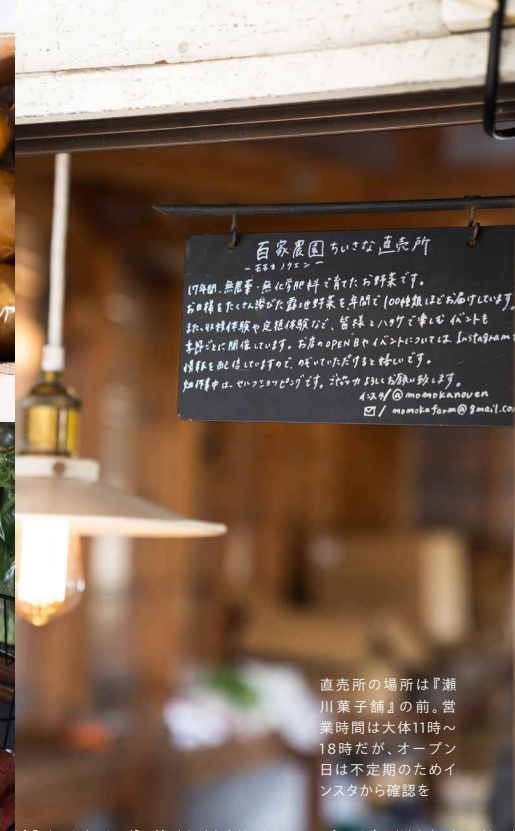 百家農園 ちいさな直売所
ーモモカノウエンー
17年間、無農薬・無化学肥料で育てたお野菜です。
お日様をたくさん浴びた露地野菜を年間で100種類ほどお届けしています。
また、収穫体験や定植体験など、皆様とハタケで楽しむイベントも
季節ごとに開催しています。お店のOPEN日やイベントについては、Instagramで
情報を配信していますので、のぞいていただけると嬉しいです。
畑作業中は、セルフショッピングです。ご協力よろしくお願い致します。
インスタ/@momokanouen
/momokafarm@gmail.co
直売所の場所は『瀬
川菓子舗』の前。営
業時間は大体11時〜
18時だが、オープン
日は不定期のためイ
ンスタから確認を